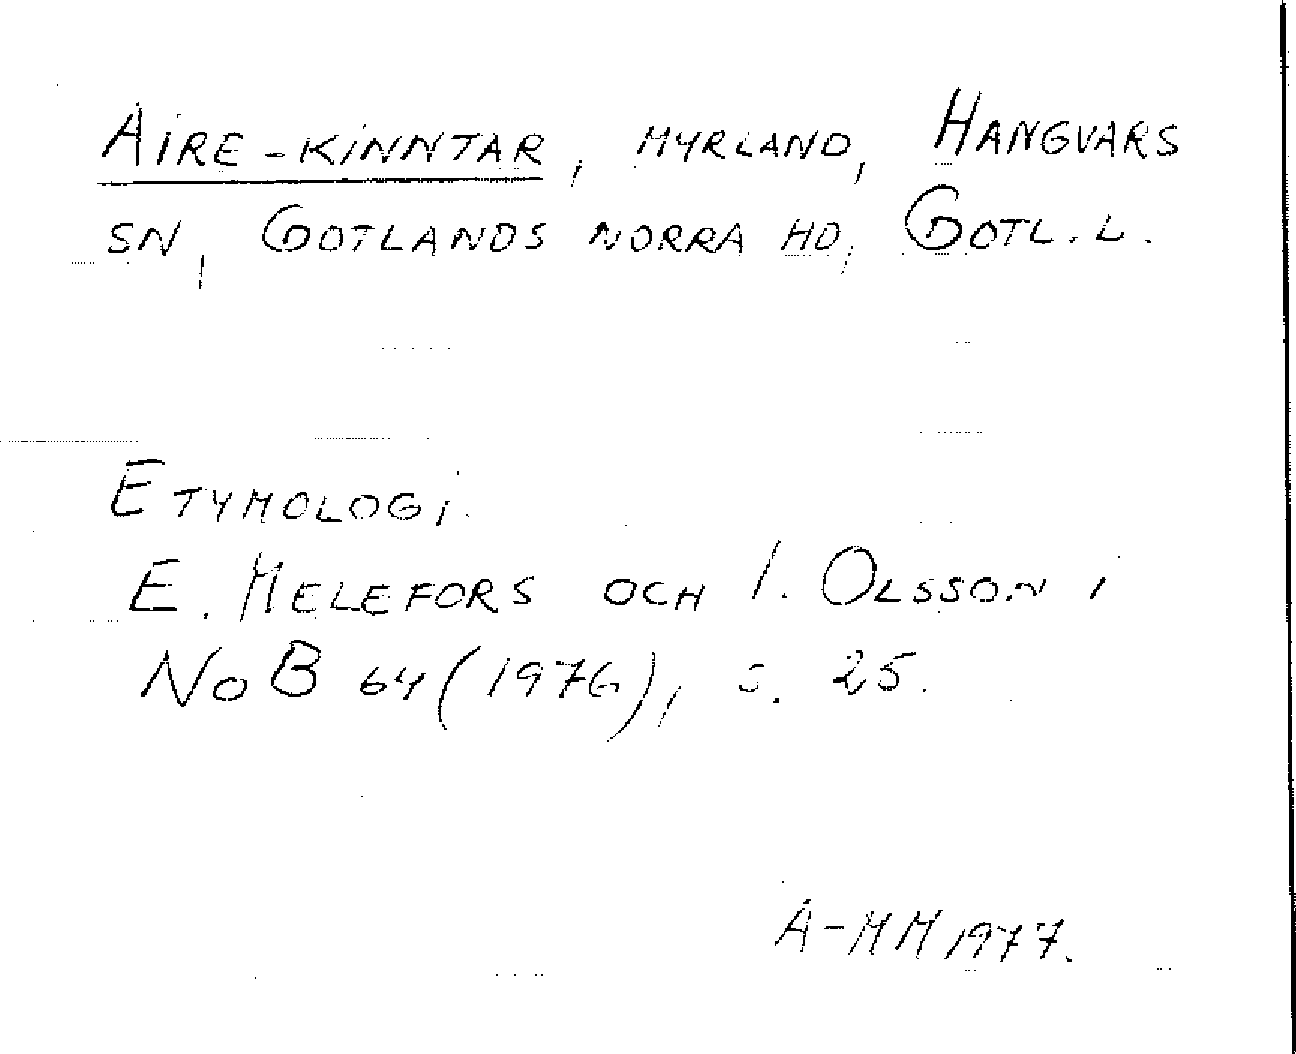 AIRE-KINNTAR, MYRLAND, HANGVARS
SN, GOTLANDS NORRA HD, GOTL. L.
ETYMOLOGI.
E. MELEFORS OCH I. OLSSON I
NoB 64 (1976), s. 25.
A-MM 1977.